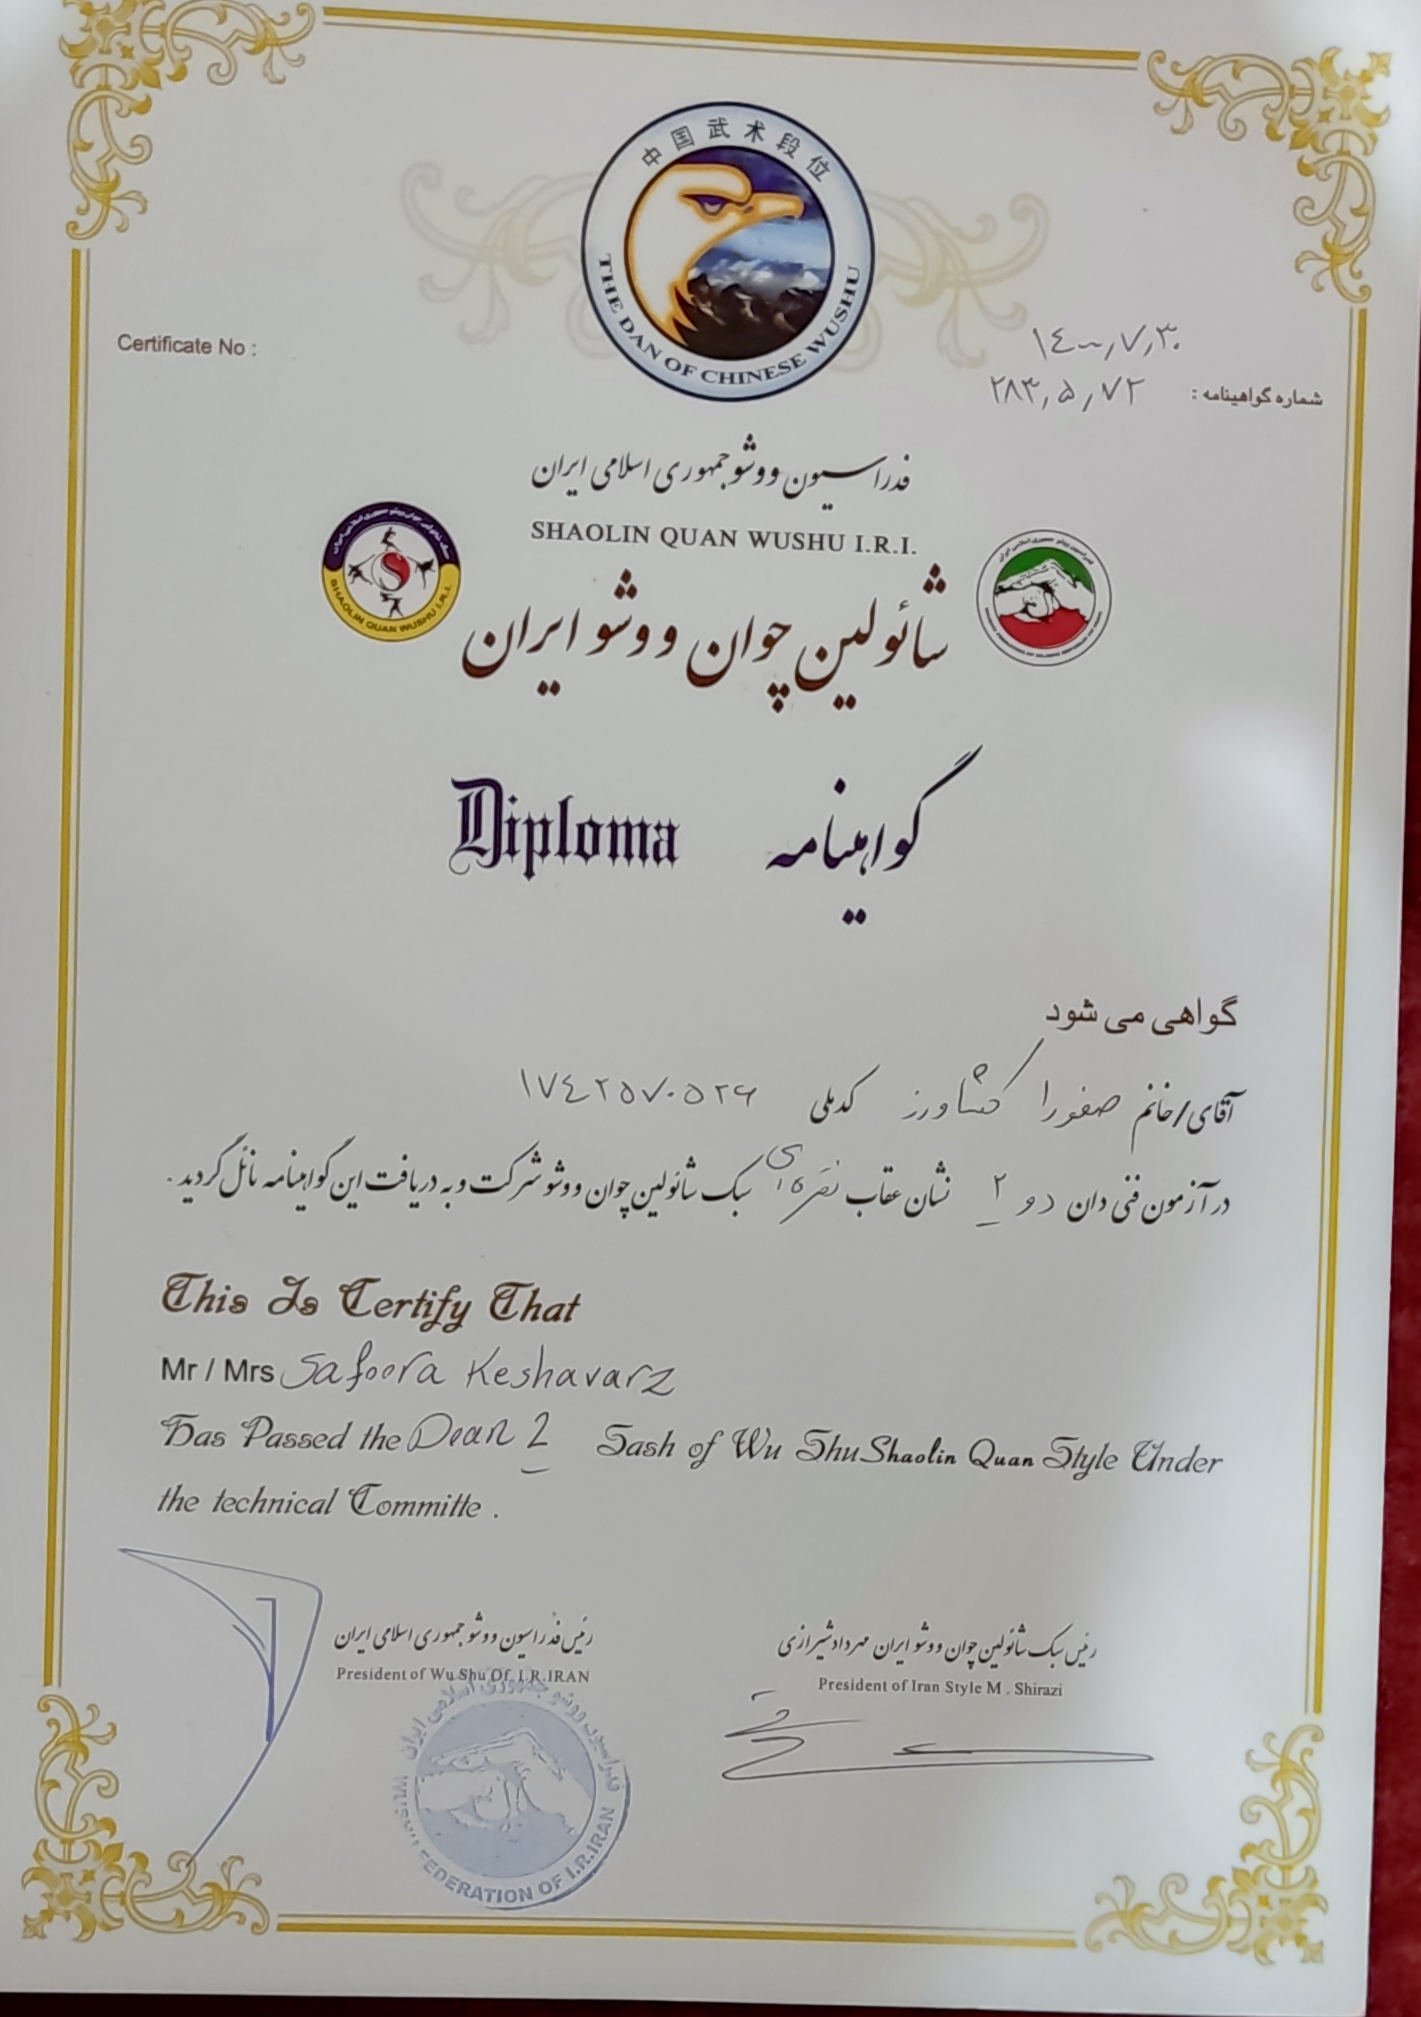 中国武术段位
THE DAN OF CHINESE WUSHU
۱۴۰۰,۷,۳۰
Certificate No :
شماره گواهینامه : ۲۸۳,۵,۷۲
فدراسیون ووشو جمهوری اسلامی ایران
SHAOLIN QUAN WUSHU I.R.I.
SHAOLIN QUAN WUSHU I.R.I.
شائولین چوان ووشو ایران
Diploma گواهینامه
گواهی می شود
آقای/خانم صفورا کشاورز کدملی ۱۷۴۲۵۷۰۵۲۶
در آزمون فنی دان دو ۲ نشان عقاب نقره ای سبک شائولین چوان ووشو شرکت و به دریافت این گواهینامه نائل گردید .
This Is Certify That
Mr / Mrs Safoora Keshavarz
Has Passed the Dean 2 Sash of Wu Shu Shaolin Quan Style Under
the technical Committe .
رئیس سبک شائولین چوان ووشو ایران مهرداد شیرازی
President of Iran Style M . Shirazi
رئیس فدراسیون ووشو جمهوری اسلامی ایران
President of Wu Shu Of I.R.IRAN
فدراسیون ووشو جمهوری اسلامی ایران
WUSHU FEDERATION OF I.R.IRAN